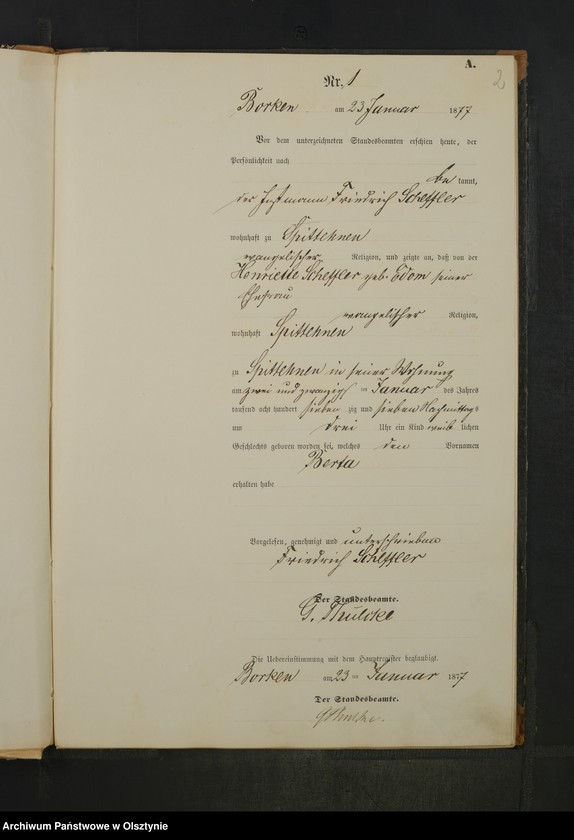 A.
2
Nr. 1
Borken am 23 Januar 1877
Vor dem unterzeichneten Standesbeamten erschien heute, der
Persönlichkeit nach
be kannt,
der Instmann Friedrich Scheffler
wohnhaft zu Spittehnen
evangelischer Religion, und zeigte an, daß von der
Henriette Scheffler geb. Edom seiner
Ehefrau
evangelischer Religion,
wohnhaft Spittehnen
zu Spittehnen in seiner Wohnung
am zwei und zwanzigs ten Januar des Jahres
tausend acht hundert sieben zig und sieben Nachmittags
um drei Uhr ein Kind weib lichen
Geschlechts geboren worden sei, welches den Vornamen
Berta
erhalten habe
Vorgelesen, genehmigt und unterschrieben
Friedrich Scheffler
Der Standesbeamte.
G. Thulcke
Die Uebereinstimmung mit dem Hauptregister beglaubigt.
Borken am 23 ten Januar 1877
Der Standesbeamte.
Archiwum Państwowe w Olsztynie